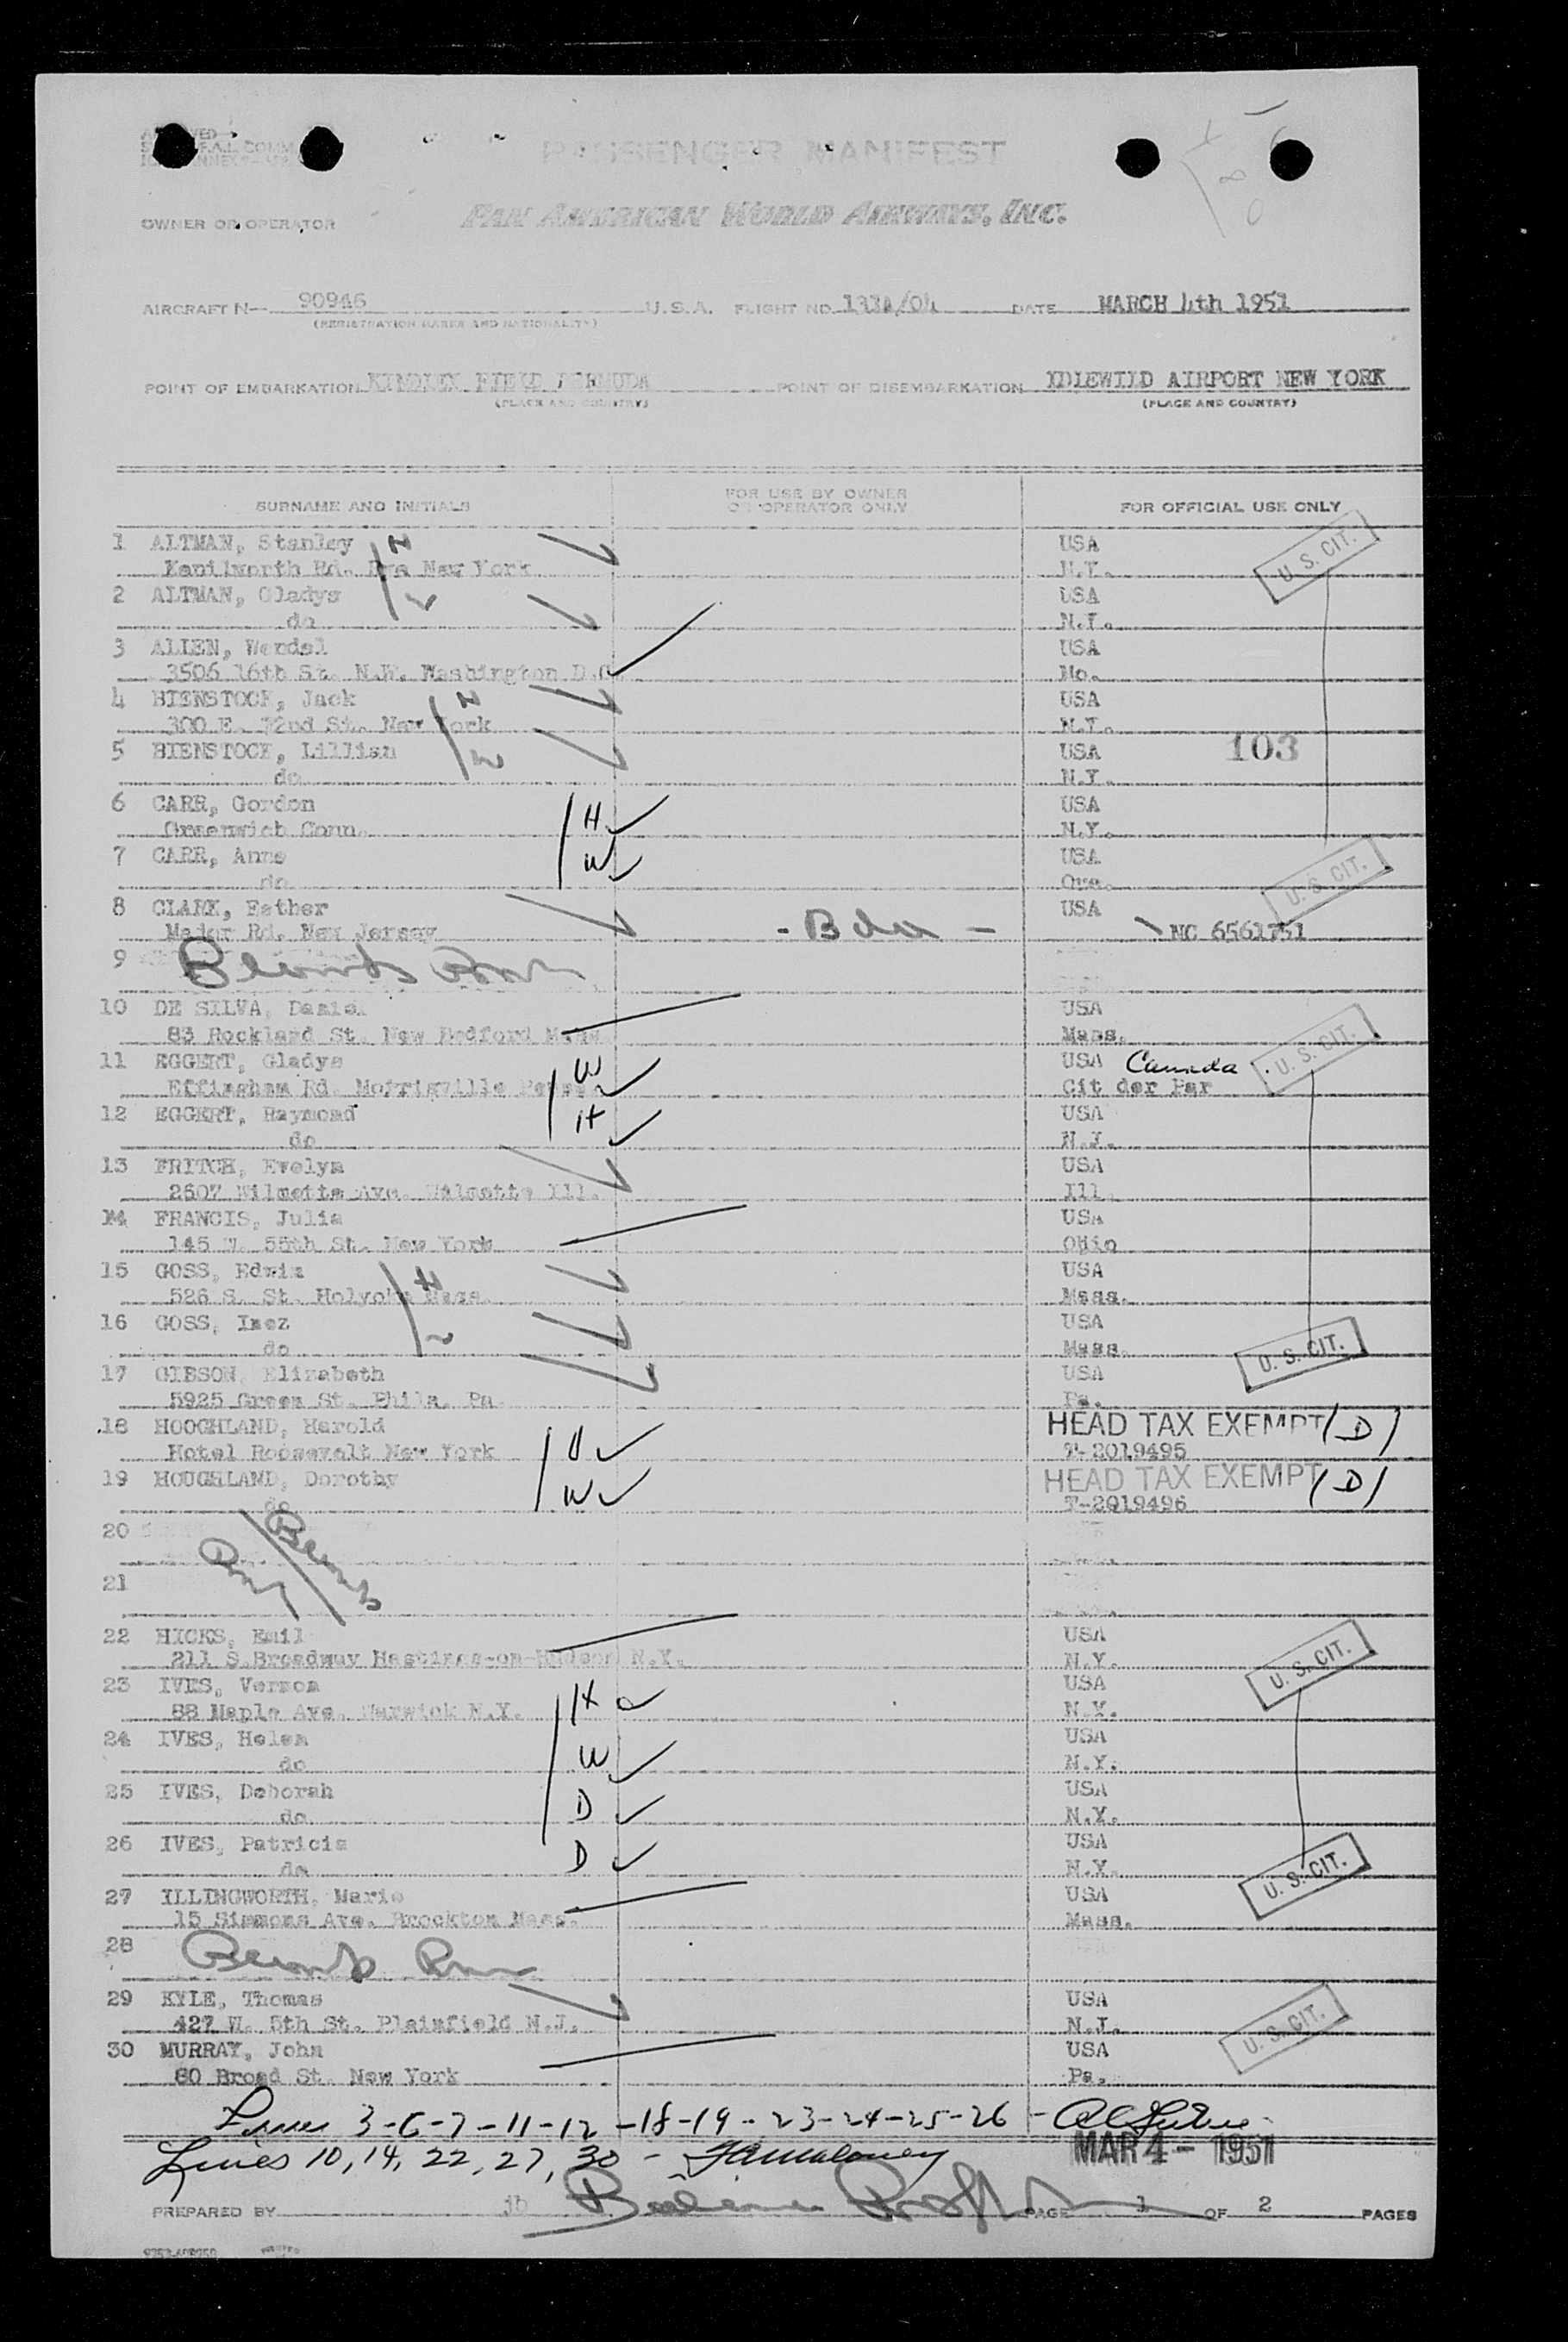 PASSENGER MANIFEST
OWNER OR OPERATOR PAN AMERICAN WORLD AIRWAYS, INC.
AIRCRAFT N— 90946 U.S.A. FLIGHT NO. 133A/04 DATE MARCH 4th 1951
(REGISTRATION MARKS AND NATIONALITY)
POINT OF EMBARKATION KINDLEY FIELD BERMUDA POINT OF DISEMBARKATION IDLEWILD AIRPORT NEW YORK
(PLACE AND COUNTRY) (PLACE AND COUNTRY)
SURNAME AND INITIALS FOR USE BY OWNER OR OPERATOR ONLY FOR OFFICIAL USE ONLY
1 ALTMAN, Stanley H USA U.S. CIT.
Kenilworth Rd. New York N.Y.
2 ALTMAN, Gladys W USA
do N.Y.
3 ALLEN, Wendel USA
3506 16th St. N.W. Washington D.C. Mo.
4 BIENSTOCK, Jack H USA
300 E. 72nd St. New York N.Y.
5 BIENSTOCK, Lillian W USA 103
do N.Y.
6 CARR, Gordon H USA
Greenwich Conn. N.Y.
7 CARR, Anne W USA
do Ore. U.S. CIT.
8 CLARK, Esther USA
Major Rd. New Jersey - Bda - NC 6561751
9
10 DE SILVA, Daniel USA
83 Rockland St. New Bedford Mass Mass. U.S. CIT.
11 EGGERT, Gladys W USA Canada
Effingham Rd. Morrisville Penna. Cit der Par
12 EGGERT, Raymond H USA
do N.J.
13 FRITCH, Evelyn USA
2607 Wilmette Ave. Wilmette Ill. Ill.
14 FRANCIS, Julia USA
145 W. 55th St. New York Ohio
15 GOSS, Edwin H USA
526 S. St. Holyoke Mass. Mass.
16 GOSS, Inez W USA
do Mass. U.S. CIT.
17 GIBSON, Elizabeth USA
5925 Green St. Phila. Pa. Pa.
18 HOOGHLAND, Harold H HEAD TAX EXEMPT (D)
Hotel Roosevelt New York T-2019495
19 HOUGHLAND, Dorothy W HEAD TAX EXEMPT (D)
do T-2019496
20
21
22 HICKS, Emil USA
211 S.Broadway Hastings-on-Hudson N.Y. N.Y. U.S. CIT.
23 IVES, Vernon H USA
88 Maple Ave. Warwick N.Y. N.Y.
24 IVES, Helen W USA
do N.Y.
25 IVES, Deborah D USA
do N.Y.
26 IVES, Patricia D USA
do N.Y. U.S. CIT.
27 ILLINGWORTH, Marie USA
15 Simmons Ave. Brockton Mass. Mass.
28
29 KYLE, Thomas USA
427 W. 5th St. Plainfield N.J. N.J. U.S. CIT.
30 MURRAY, John USA
80 Broad St. New York Pa.
Lines 3-6-7-11-12-18-19-23-24-25-26 -
Lines 10, 14, 22, 27, 30 - MAR 4 - 1951
PREPARED BY jb PAGE 1 OF 2 PAGES